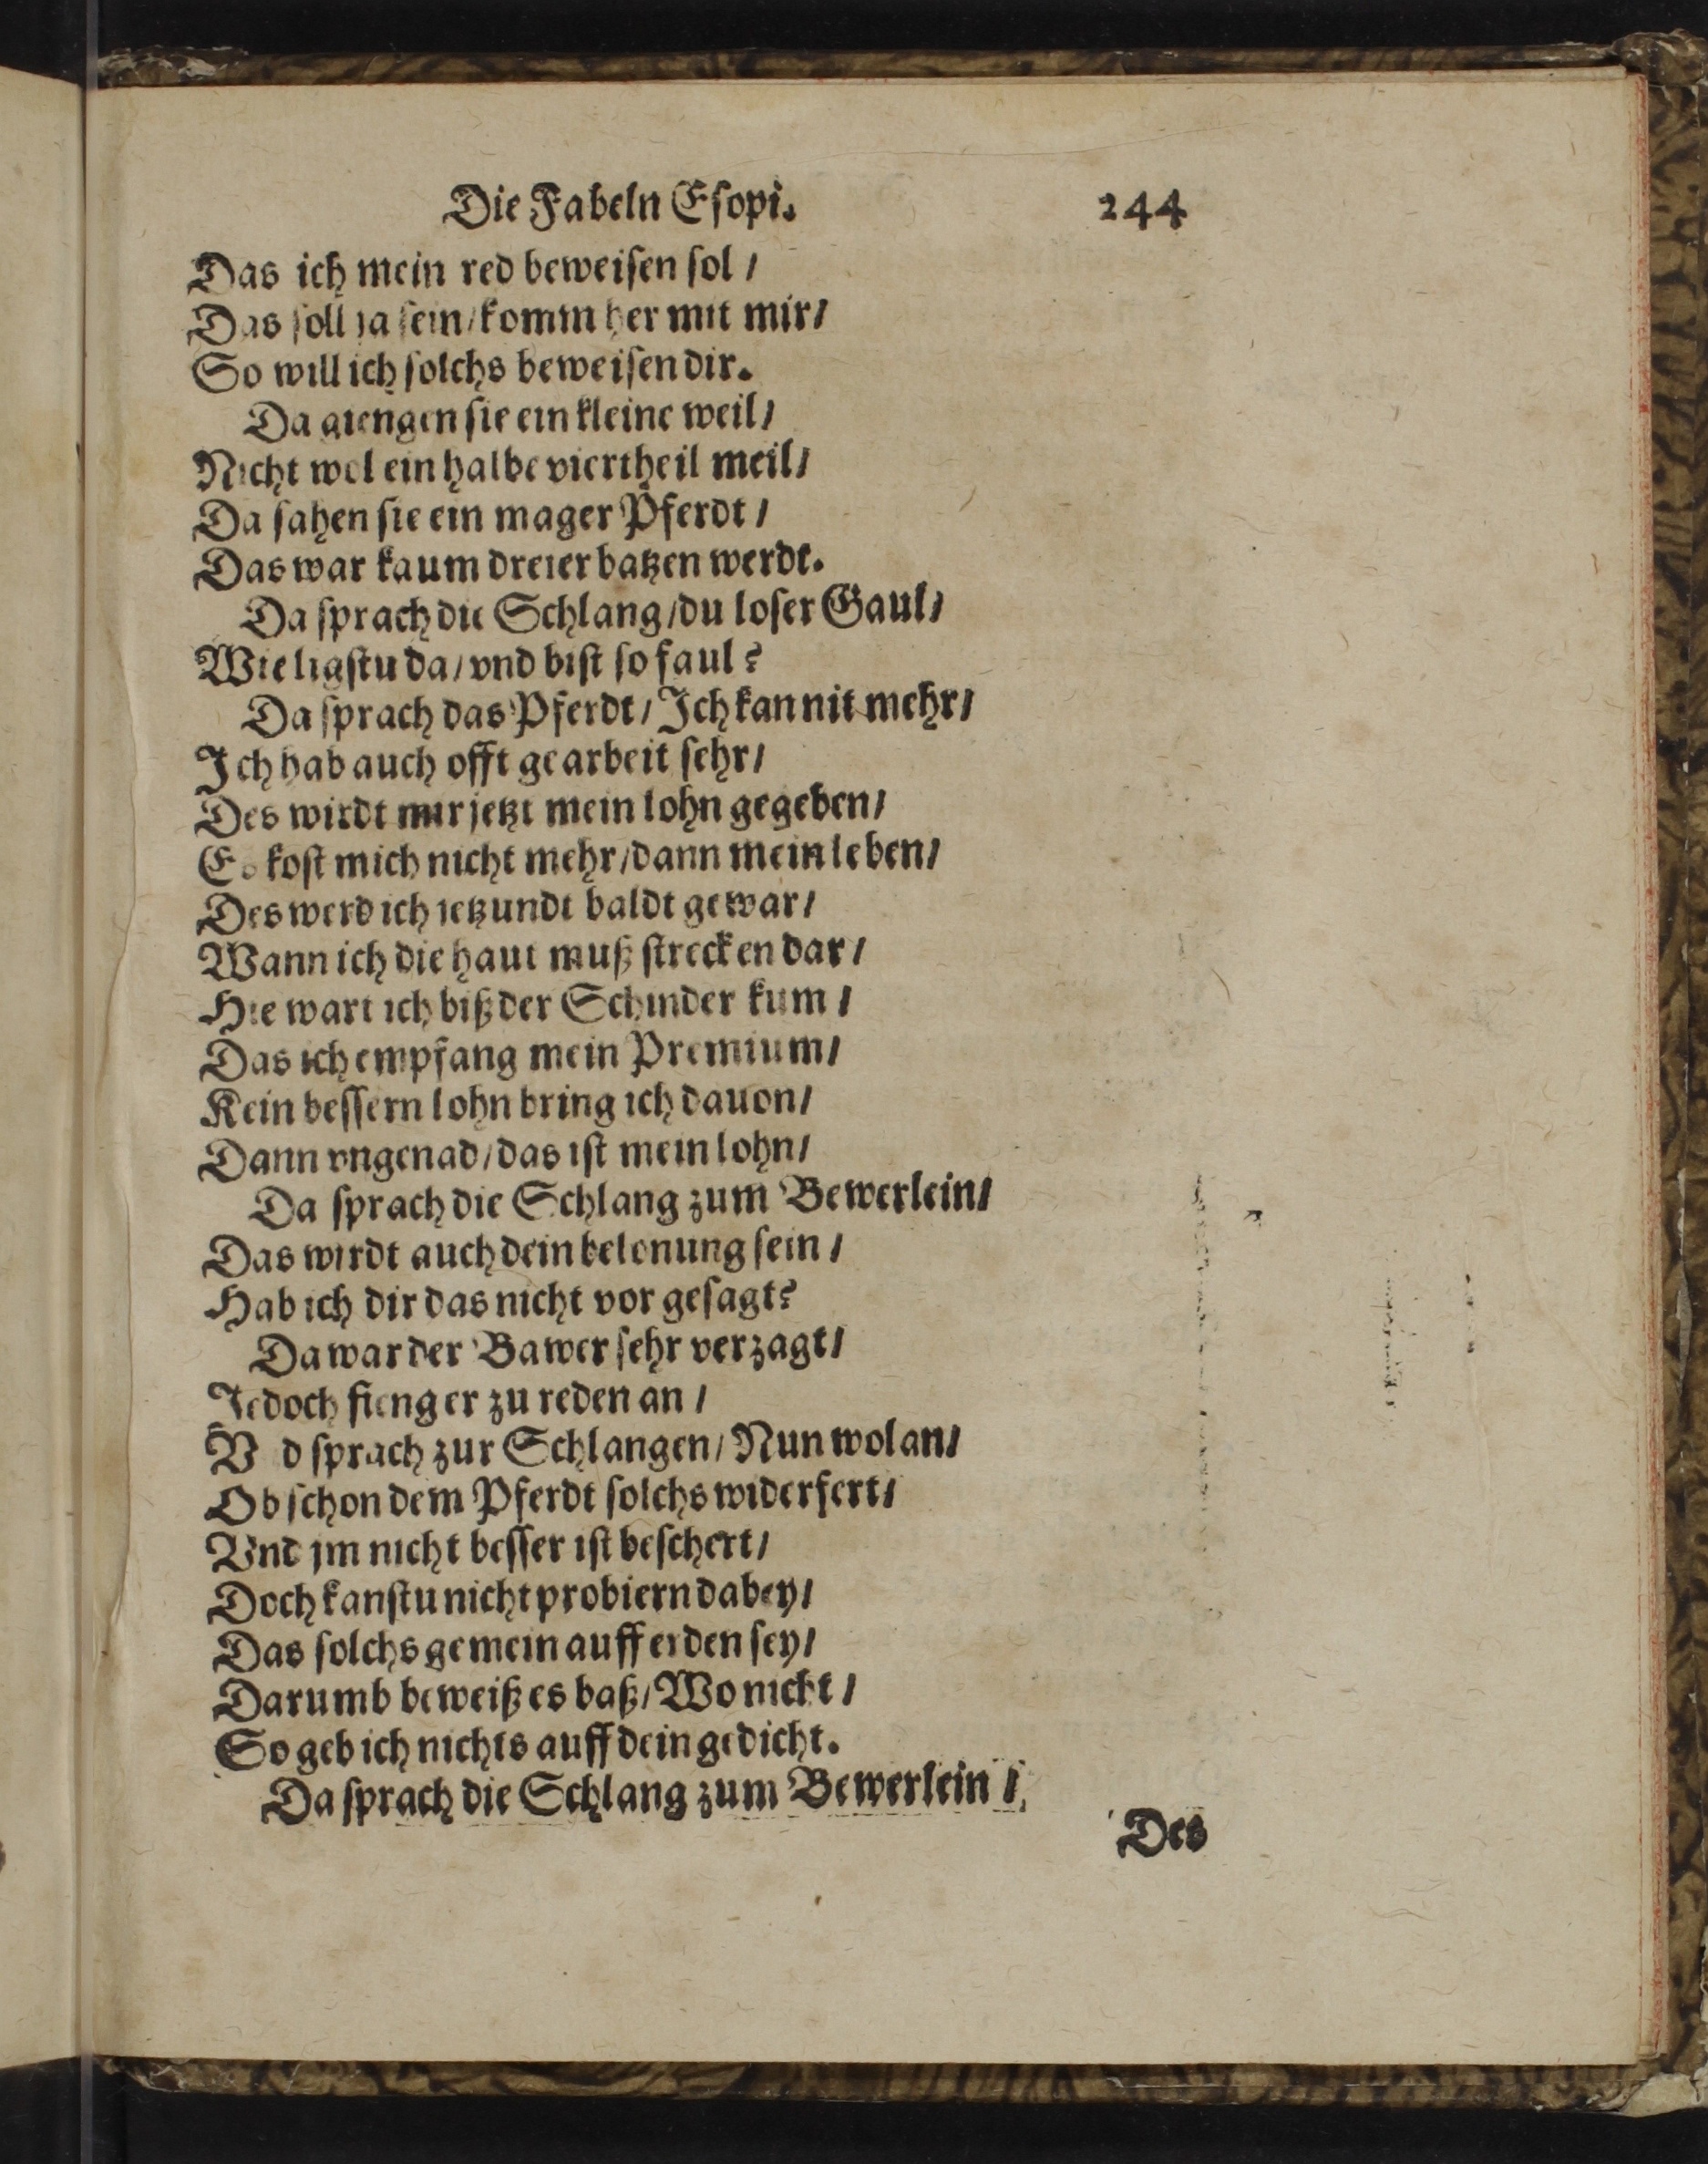 Die Fabeln Eſopi. 244
Das ich mein red beweiſen ſol /
Das ſoll ja ſein / komm her mit mir /
So will ich ſolchs beweiſen dir.
Da giengen ſie ein kleine weil /
Nicht wol ein halbe viertheil meil /
Da ſahen ſie ein mager Pferdt /
Das war kaum dreier batzen werdt.
Da ſprach die Schlang / du loſer Gaul /
Wie ligſtu da / vnd biſt ſo faul?
Da ſprach das Pferdt / Ich kan nit mehr /
Ich hab auch offt gearbeit ſehr /
Des wirdt mir jetzt mein lohn gegeben /
Es koſt mich nicht mehr / dann mein leben /
Des werd ich jetzundt baldt gewar /
Wann ich die haut muß ſtrecken dar /
Hie wart ich biß der Schinder kum /
Das ich empfang mein Premium /
Kein beſſern lohn bring ich dauon /
Dann vngenad / das iſt mein lohn /
Da ſprach die Schlang zum Bewerlein /
Das wirdt auch dein belonung ſein /
Hab ich dir das nicht vor geſagt?
Da war der Bawer ſehr verzagt /
Jedoch fieng er zu reden an /
V d ſprach zur Schlangen / Nun wolan /
Ob ſchon dem Pferdt ſolchs widerfert /
Vnd jm nicht beſſer iſt beſchert /
Doch kanſtu nicht probiern dabey /
Das ſolchs gemein auff erden ſey /
Darumb beweiß es baß / Wo nicht /
So geb ich nichts auff dein gedicht.
Da ſprach die Schlang zum Bewerlein /
Des